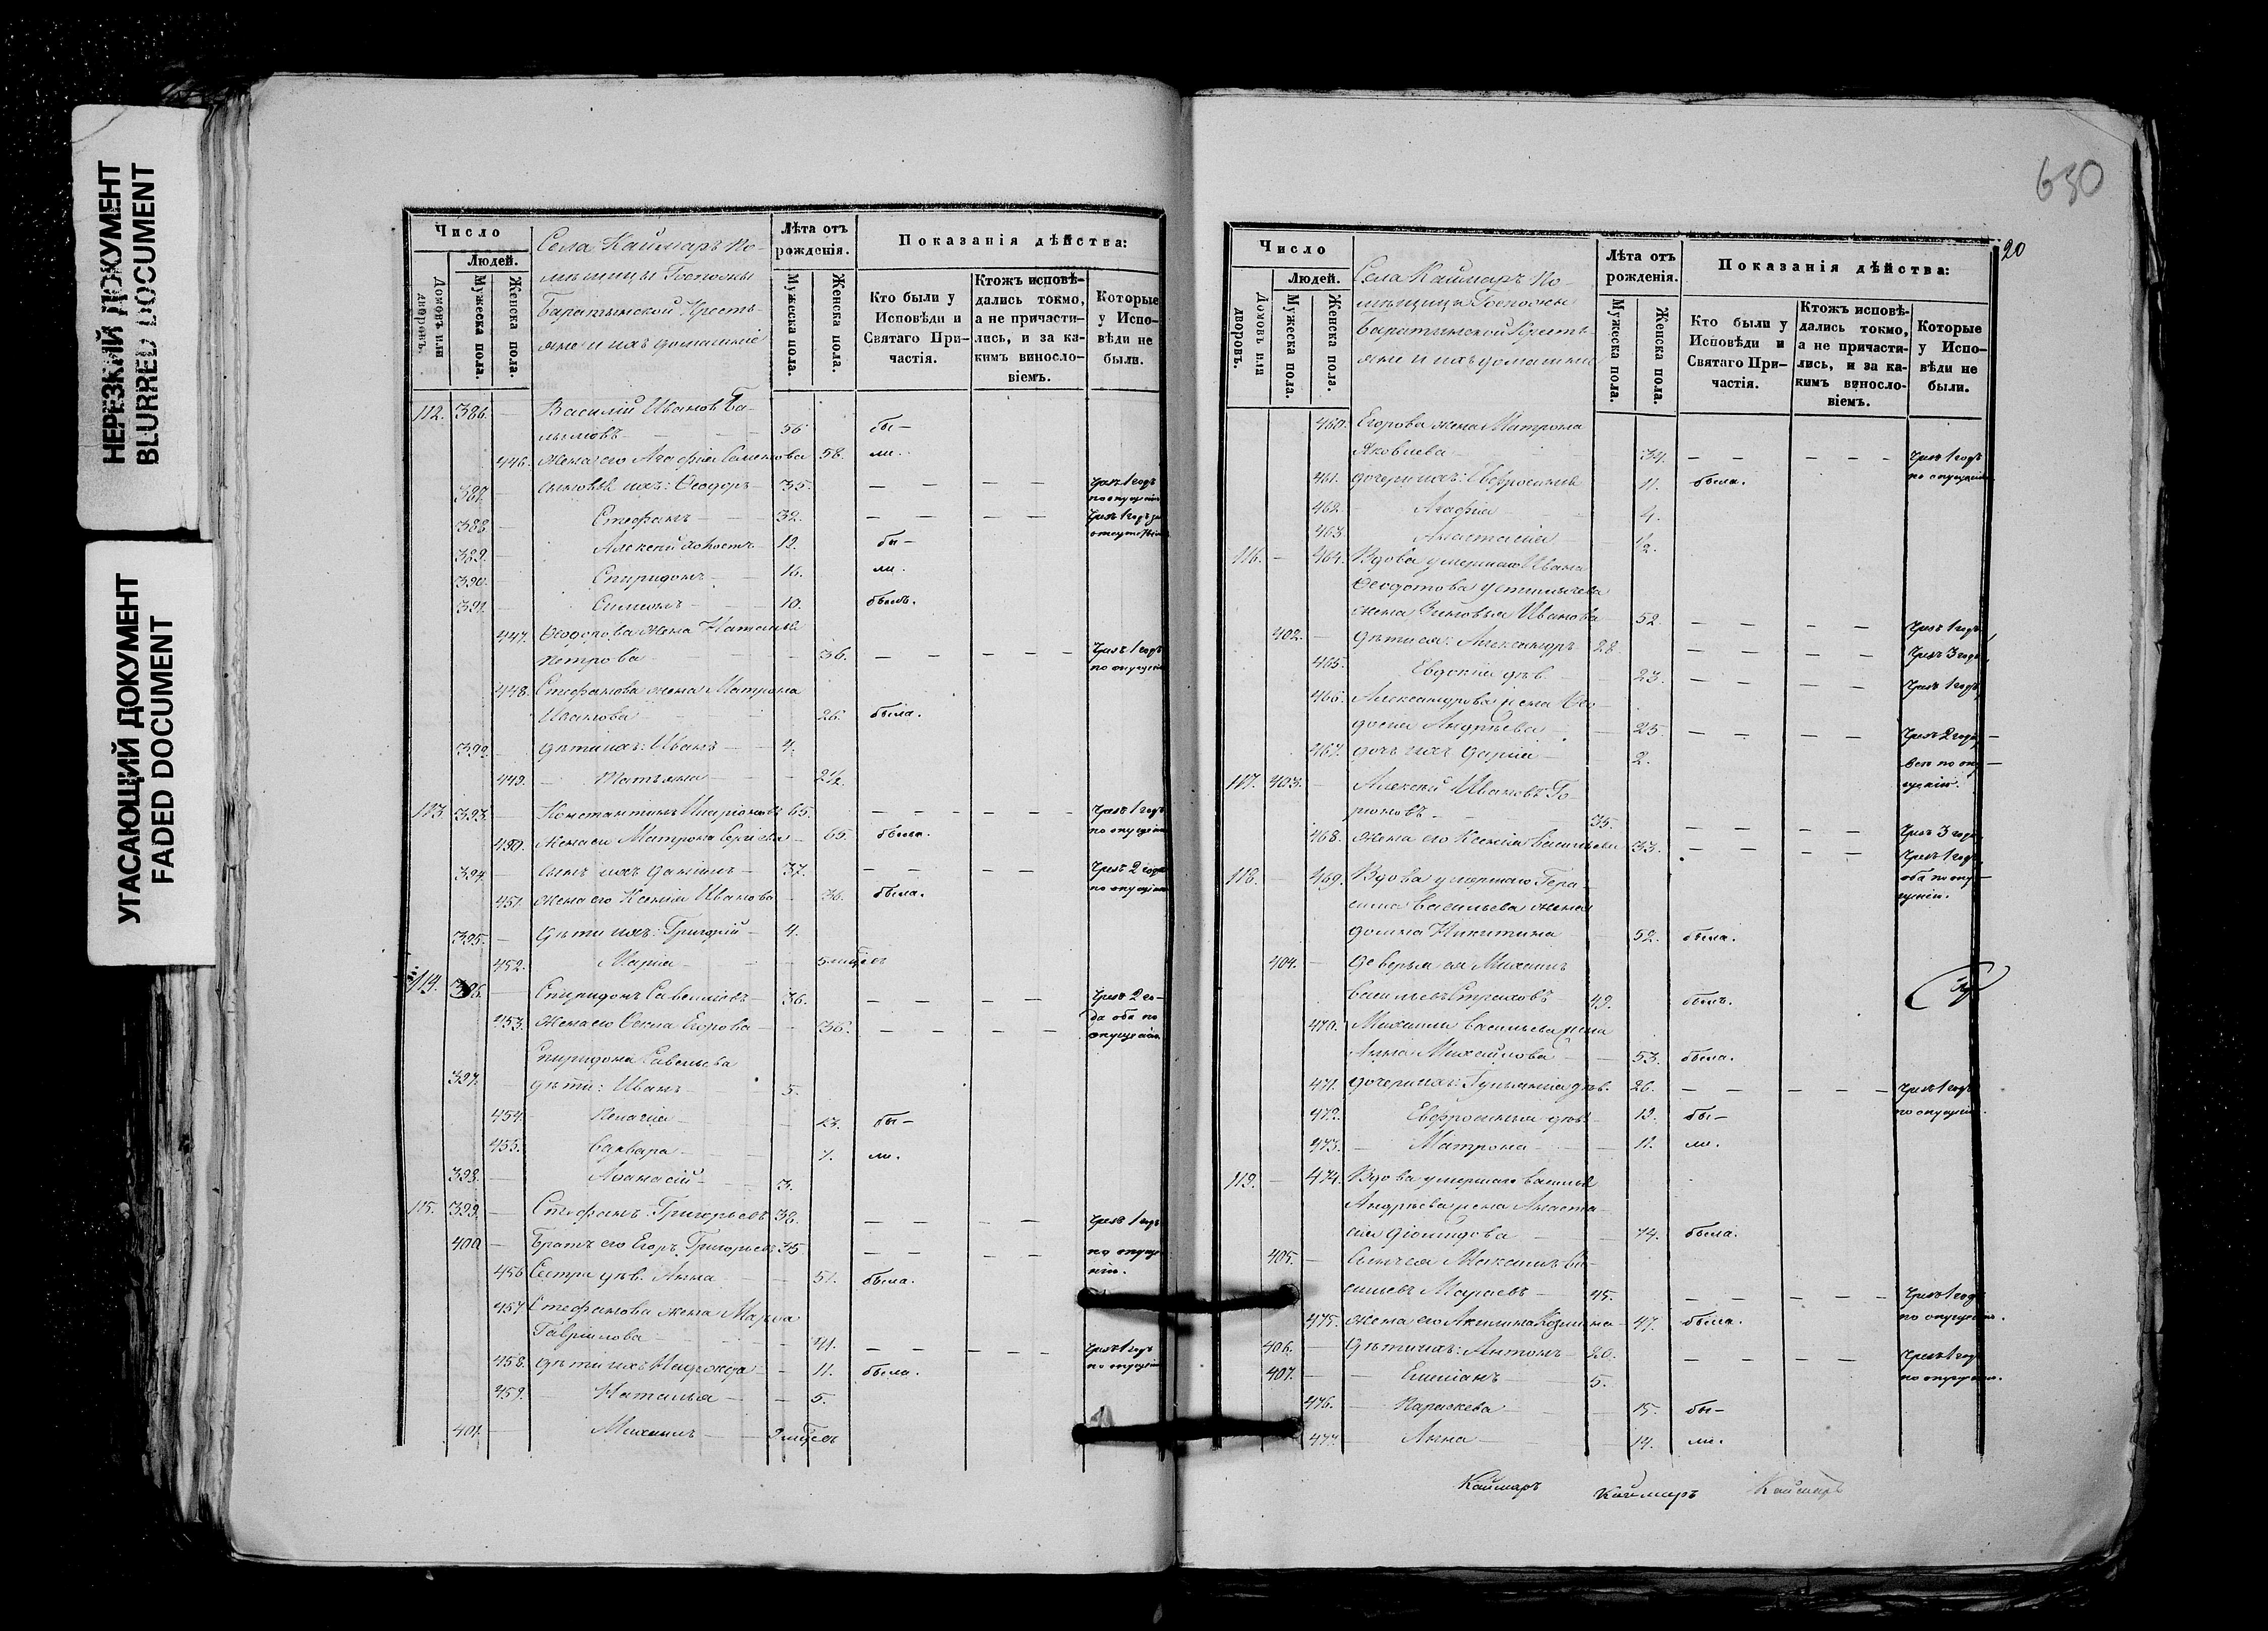 НЕРЕЗКИЙ ДОКУМЕНТ
BLURRED DOCUMENT
УГАСАЮЩИЙ ДОКУМЕНТ
FADED DOCUMENT
Число
Людей.
Домовъ или дворовъ.
Мужеска пола.
Женска пола.
Села Каймаръ По-
мѣщицы Госпожи
Баратынской Кресть-
яне и ихъ домашніе
Лѣта отъ рожденія.
Мужеска пола.
Женска пола.
Показанія дѣйства:
Кто были у Исповѣди и Святаго При-частія.
Ктожъ исповѣ-дались токмо, а не причасти-лись, и за ка-кимъ винословіемъ.
Которые у Испо-вѣди не были.
112. 386. Василій Ивановъ
56 бы-
446. жена его Агафія Семенова 58. ли.
387. сыновья ихъ: Ѳеодоръ 35. чрезъ 1 годъ
по опущенію
388. Стефанъ 32. чрезъ 1 годъ за
отсутствіемъ
389. Алексій холостъ 19. бы-
390. Спиридонъ 16. ли.
391. Симеонъ 10. былъ.
447. Ѳеодорова жена Наталья
Петрова 36. чрезъ 1 годъ
по опущенію
448. Стефанова жена Матрона
Иванова 26. была.
392. дѣти ихъ: Иванъ 4.
449. Татьяна 2½
113. 393. Константинъ Иларіоновъ 65. чрезъ 1 годъ
по опущенію
450. жена его Матрона Сергѣева 65. была.
394. сынъ ихъ Даніилъ 37. чрезъ 2 года
по опущенію
451. жена его Ксенія Иванова 36. была.
395. дѣти ихъ: Григорій 4.
452. Марія 5 мѣсяцъ
114. 396. Спиридонъ Савельевъ 36. чрезъ 2 го-
да оба по
453. жена его Ѳекла Егорова 36. опущенію
Спиридона Савельева
397. дѣти: Иванъ 5.
454. Пелагія 13. бы-
455. Варвара 7. ли.
398. Аѳанасій 3.
115. 399. Стефанъ Григорьевъ 38. чрезъ 1 годъ
400 Братъ его Егоръ Григорьевъ 35 по опуще-
нію.
456 Сестра дѣв. Анна 51. была.
457 Стефанова жена Марѳа
Гавріилова 41. чрезъ 1 годъ
по опущенію
458. дѣти ихъ Надежда 11. была.
459. Наталья 5.
401. Михаилъ 9 мѣсяцъ
630
20
Число
Людей.
Домовъ или дворовъ.
Мужеска пола.
Женска пола.
Села Каймаръ По-
мѣщицы Госпожи
Баратынской Кресть-
яне и ихъ домашніе
Лѣта отъ рожденія.
Мужеска пола.
Женска пола.
Показанія дѣйства:
Кто были у Исповѣди и Святаго При-частія.
Ктожъ исповѣ-дались токмо, а не причасти-лись, и за ка-кимъ винословіемъ.
Которые у Испо-вѣди не были.
460. Егорова жена Матрона
Яковлева 34. чрезъ 1 годъ
по опущенію
461. дочери ихъ: Евфросинья 11. была.
462. Агафія 4.
463 Анастасія ½.
116. 464. Вдова умершаго Ивана
Ѳеодотова
жена Зиновья Иванова 52. чрезъ 1 годъ
402. дѣти ея: Александръ 28. чрезъ 3 года
465. Евдокія дѣв. 23. чрезъ 1 годъ
466. Александрова жена Ѳео-
досія Андрѣева 25. чрезъ 2 года
467. дочь ихъ Дарія 2. всѣ по опу-
щенію.
117. 403. Алексій Ивановъ Го-
рюновъ 35. чрезъ 3 года
468. жена его Ксенія Васильева 33. чрезъ 1 годъ
оба по опу-
щенію.
118. 469. Вдова умершаго Гера-
сима Васильева жена
Домна Никитина 52. была.
404. деверь ея Михаилъ
Васильевъ Страховъ 49. былъ.
470. Михаила Васильева жена
Анна Михайлова 53. была.
471. дочери ихъ: Гульянія дѣв. 26. чрезъ 1 годъ
по опущенію.
472. Евфросинья дѣв. 19. бы-
473. Матрона 11. ли.
119. 474. Вдова умершаго Василья
Андрѣева жена Анаста-
сія Діомидова 74. была.
405. Сынъ ея Максимъ Ва-
сильевъ 45. чрезъ 1 годъ
по опущенію.
475. жена его Акилина Козмина 47. была.
406. дѣти ихъ: Антонъ 20. чрезъ 1 годъ
по опущенію.
407. Емиліанъ 5.
476. Параскева 15. бы-
477. Анна 14. ли.
Каймаръ Каймаръ Каймаръ